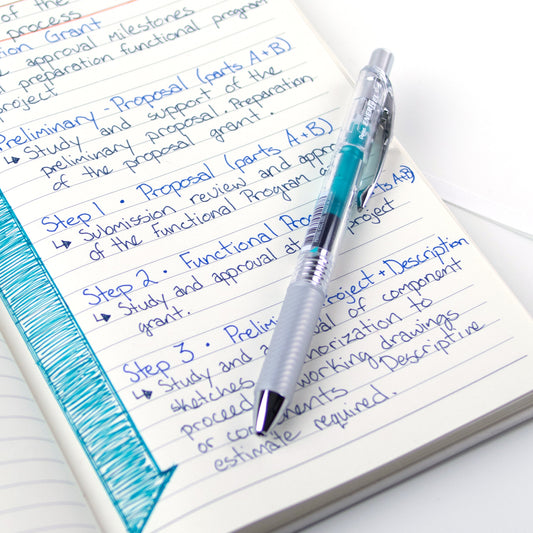 of the
process
ion Grant
approval milestones
preparation functional program
project
Preliminary - Proposal (parts A+B)
↳ Study and support of the
preliminary proposal. Preparation
of the proposal grant.
Step 1 • Proposal (parts A+B)
↳ Submission review and appr
of the Functional Program a
Step 2 • Functional Pro ts A+B)
↳ Study and approval at project
grant.
Step 3 • Prelimi roject + Description
↳ Study and a al of component
sketches horization to
proceed working drawings
or com ents Descriptive
estimate required.